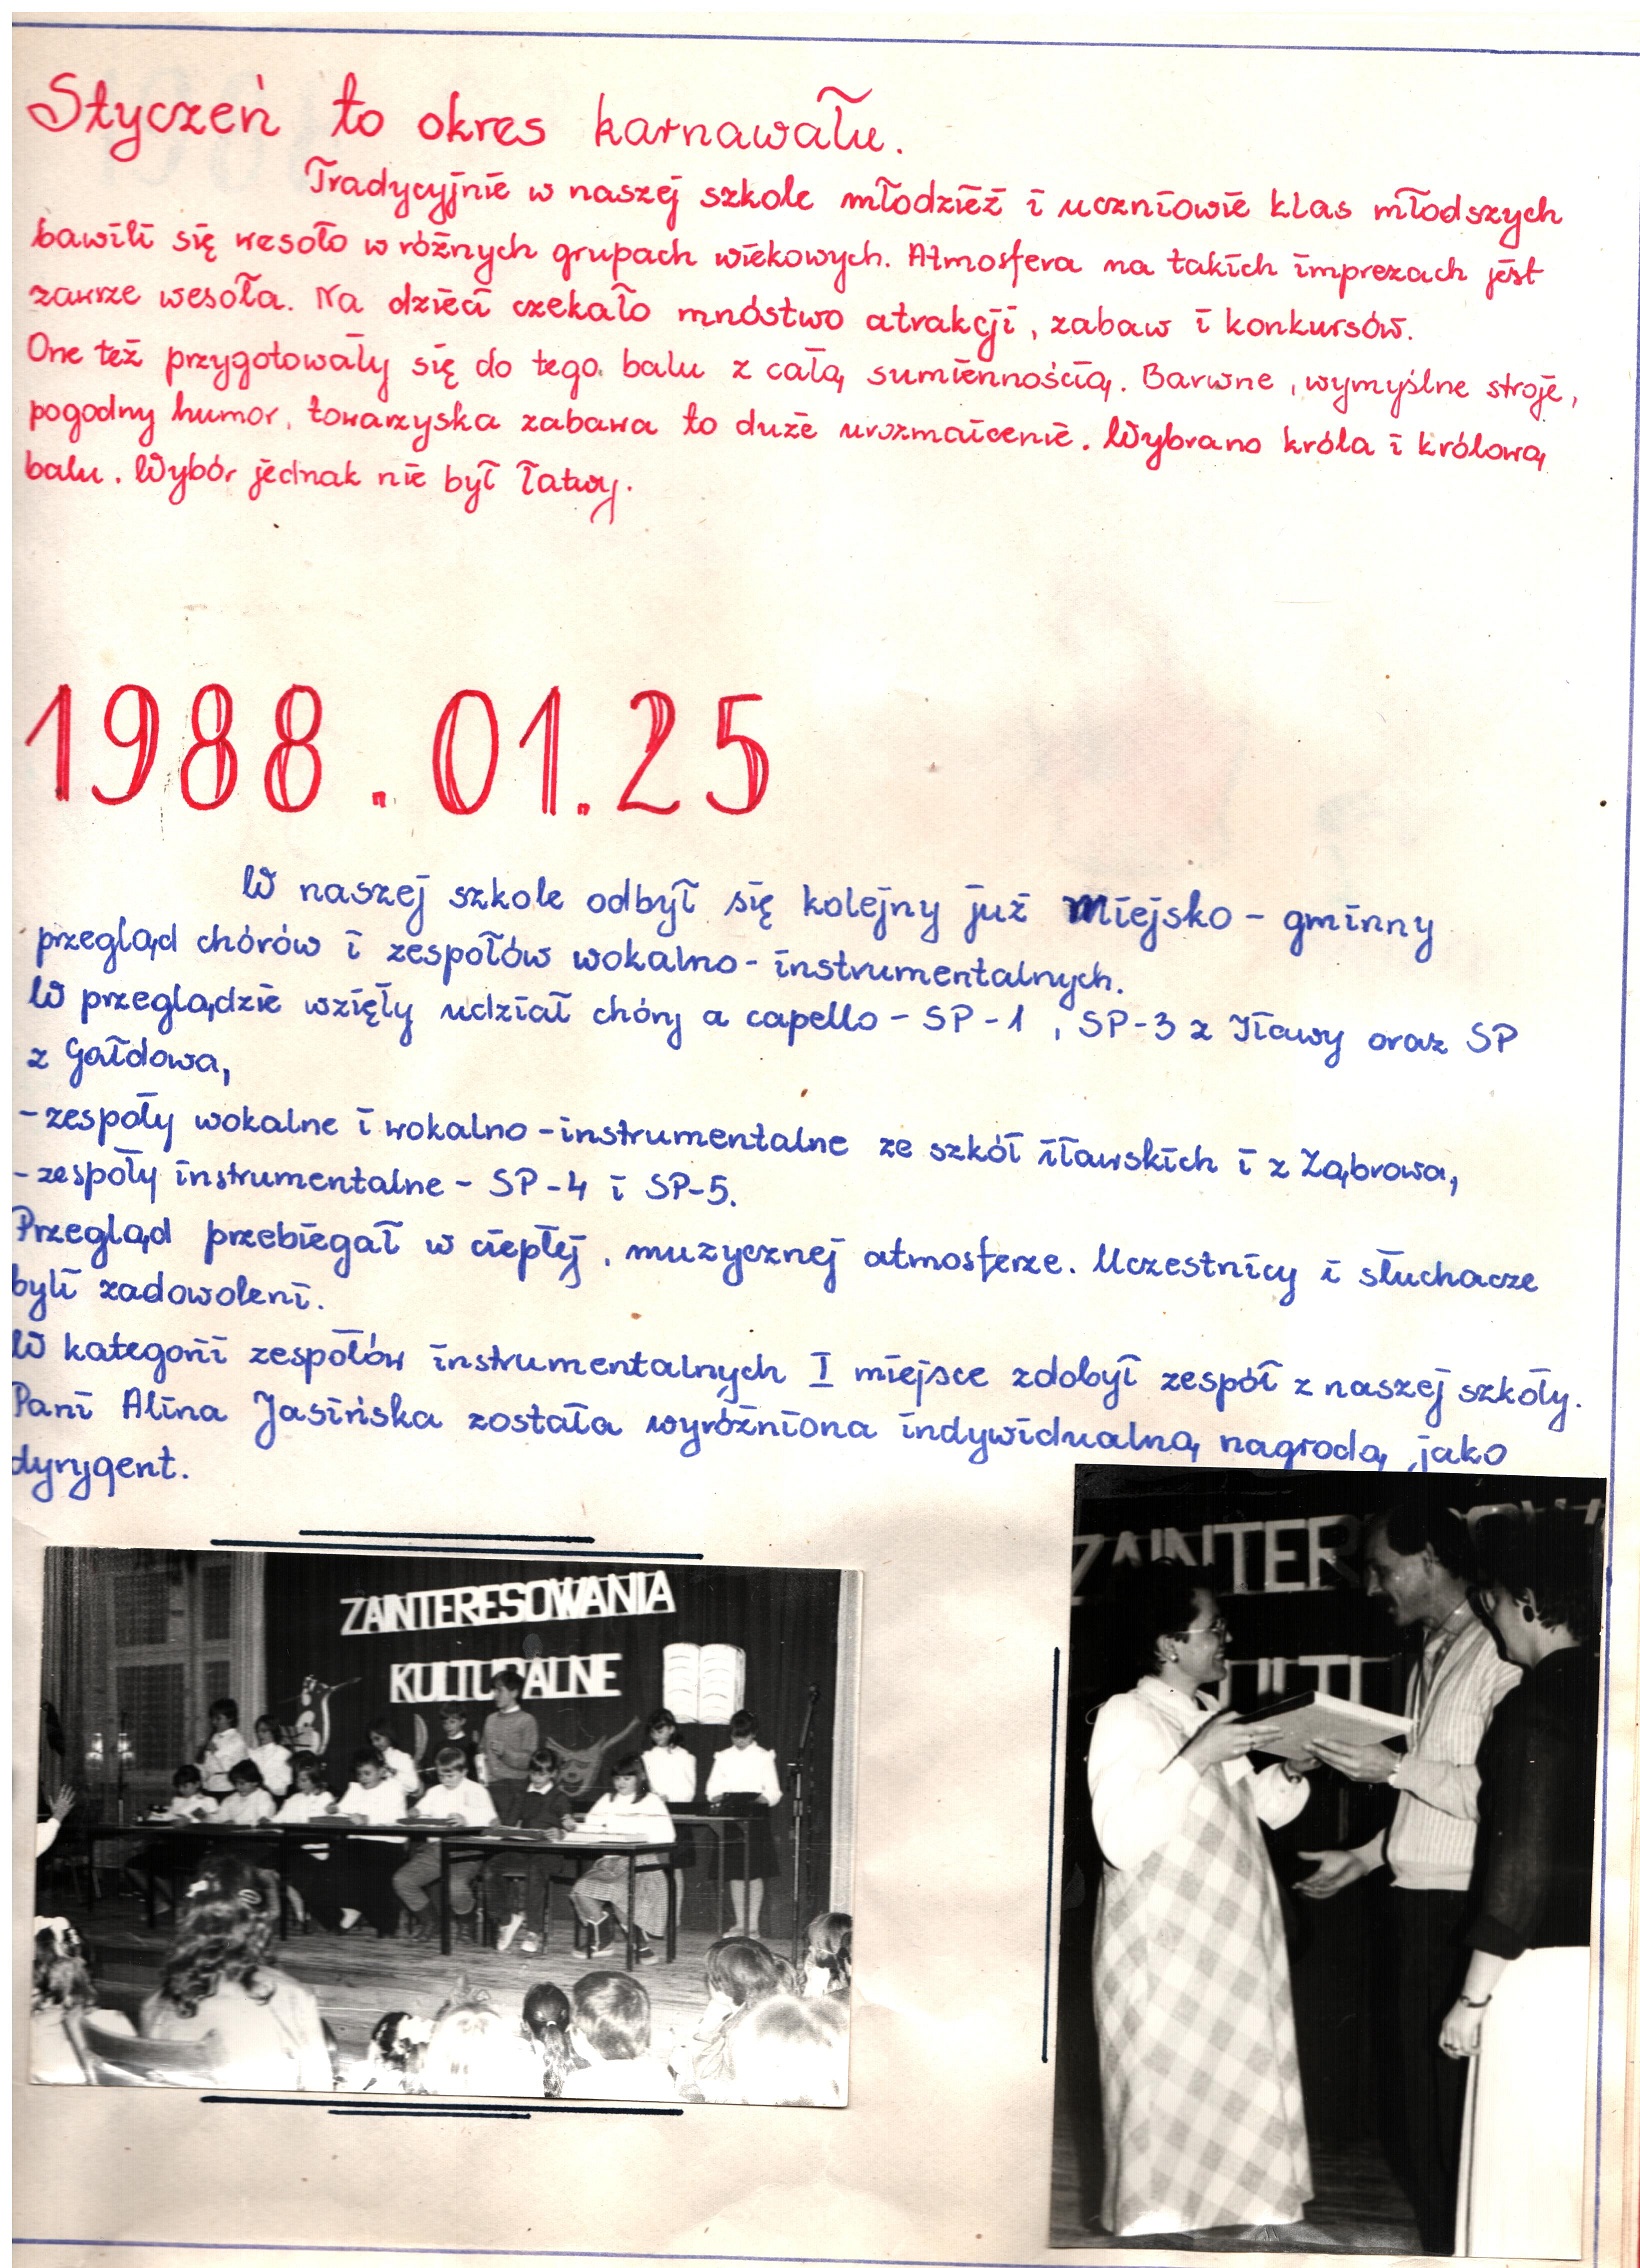 Styczeń to okres karnawału.
Tradycyjnie w naszej szkole młodzież i uczniowie klas młodszych
bawili się wesoło w różnych grupach wiekowych. Atmosfera na takich imprezach jest
zawsze wesoła. Na dzieci czekało mnóstwo atrakcji, zabaw i konkursów.
One też przygotowały się do tego balu z całą sumiennością. Barwne, wymyślne stroje,
pogodny humor, towarzyska zabawa to duże urozmaicenie. Wybrano króla i królową
balu. Wybór jednak nie był łatwy.
1988.01.25
W naszej szkole odbył się kolejny już Miejsko-gminny
przegląd chórów i zespołów wokalno-instrumentalnych.
W przeglądzie wzięły udział chóry a capello - SP-1, SP-3 z Iławy oraz SP
z Gałdowa,
-zespoły wokalne i wokalno-instrumentalne ze szkół iławskich i z Ząbrowa,
-zespoły instrumentalne - SP-4 i SP-5.
Przegląd przebiegał w ciepłej, muzycznej atmosferze. Uczestnicy i słuchacze
byli zadowoleni.
W kategorii zespołów instrumentalnych I miejsce zdobył zespół z naszej szkoły.
Pani Alina Jasińska została wyróżniona indywidualną nagrodą jako
dyrygent.
ZAINTERESOWANIA
KULTURALNE
ZAINTER
KULTU